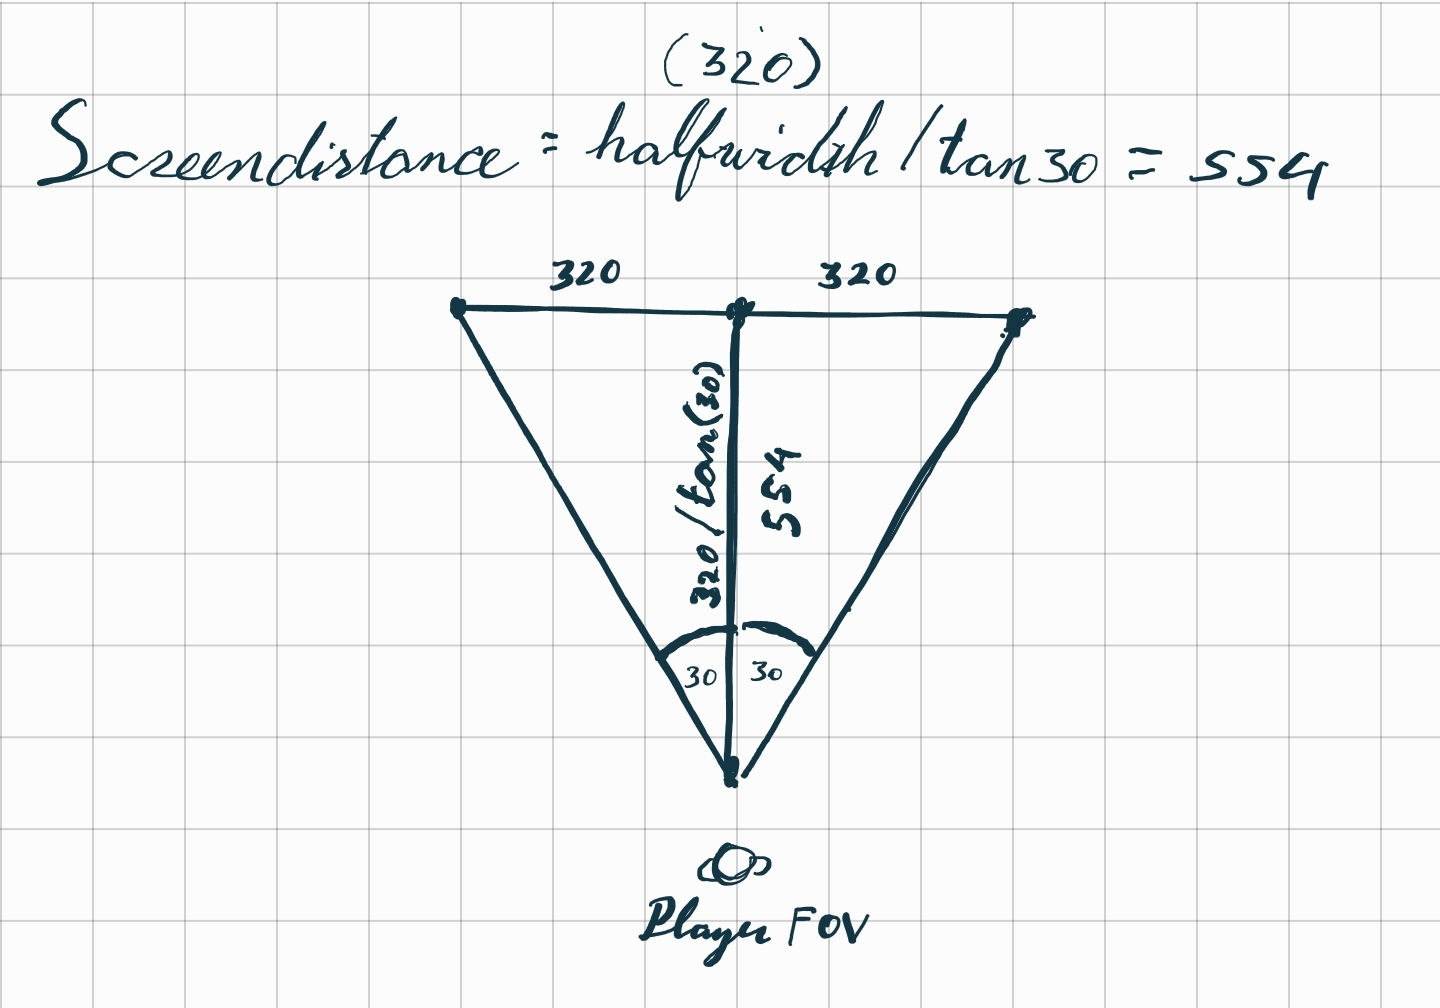 (320)
Screendistance = halfwidth / tan 30 = 554
320
320
320 / tan(30)
554
30
30
Player FOV